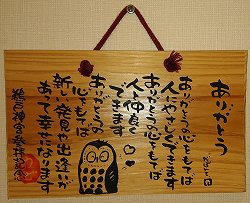 ありがとう
ありがとうの心をもてば
人にやさしくできます
ありがとうの心をもてば
人と仲良く
できます
ありがとうの
心をもてば
新しい発見や出逢いが
あって幸せになります
鵜戸神宮参拝記念